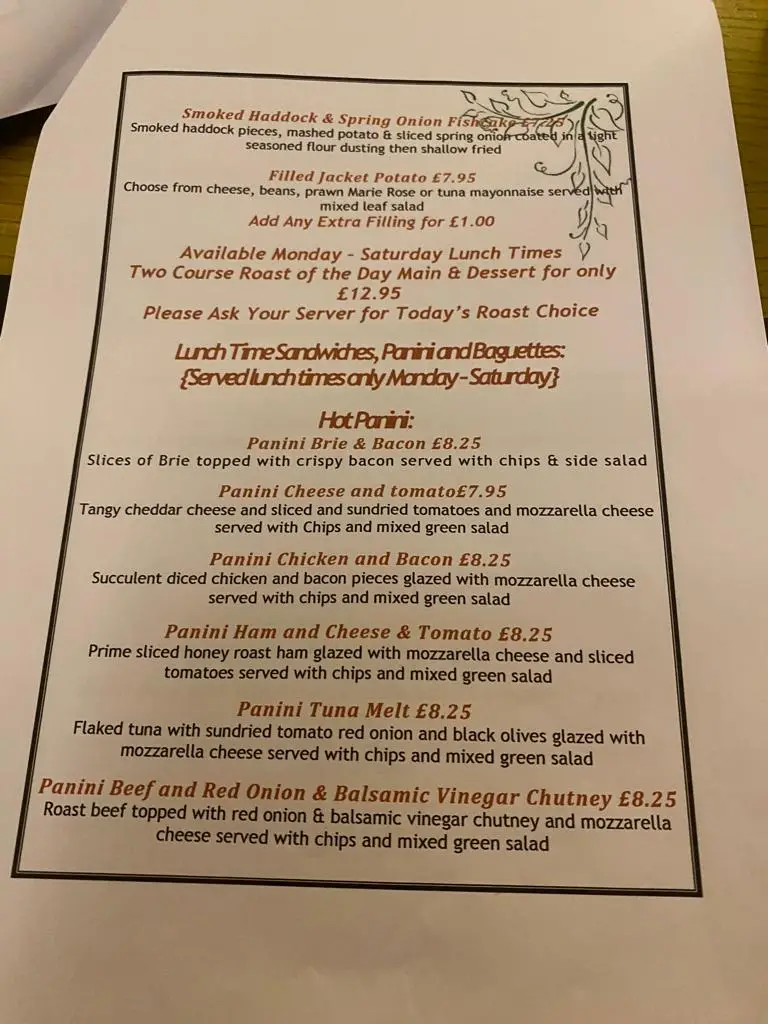 Smoked Haddock & Spring Onion Fishcake £7.25
Smoked haddock pieces, mashed potato & sliced spring onion coated in a light
seasoned flour dusting then shallow fried
Filled Jacket Potato £7.95
Choose from cheese, beans, prawn Marie Rose or tuna mayonnaise served with
mixed leaf salad
Add Any Extra Filling for £1.00
Available Monday - Saturday Lunch Times
Two Course Roast of the Day Main & Dessert for only
£12.95
Please Ask Your Server for Today's Roast Choice
Lunch Time Sandwiches, Panini and Baguettes:
{Served lunch times only Monday - Saturday}
Hot Panini:
Panini Brie & Bacon £8.25
Slices of Brie topped with crispy bacon served with chips & side salad
Panini Cheese and tomato£7.95
Tangy cheddar cheese and sliced and sundried tomatoes and mozzarella cheese
served with Chips and mixed green salad
Panini Chicken and Bacon £8.25
Succulent diced chicken and bacon pieces glazed with mozzarella cheese
served with chips and mixed green salad
Panini Ham and Cheese & Tomato £8.25
Prime sliced honey roast ham glazed with mozzarella cheese and sliced
tomatoes served with chips and mixed green salad
Panini Tuna Melt £8.25
Flaked tuna with sundried tomato red onion and black olives glazed with
mozzarella cheese served with chips and mixed green salad
Panini Beef and Red Onion & Balsamic Vinegar Chutney £8.25
Roast beef topped with red onion & balsamic vinegar chutney and mozzarella
cheese served with chips and mixed green salad